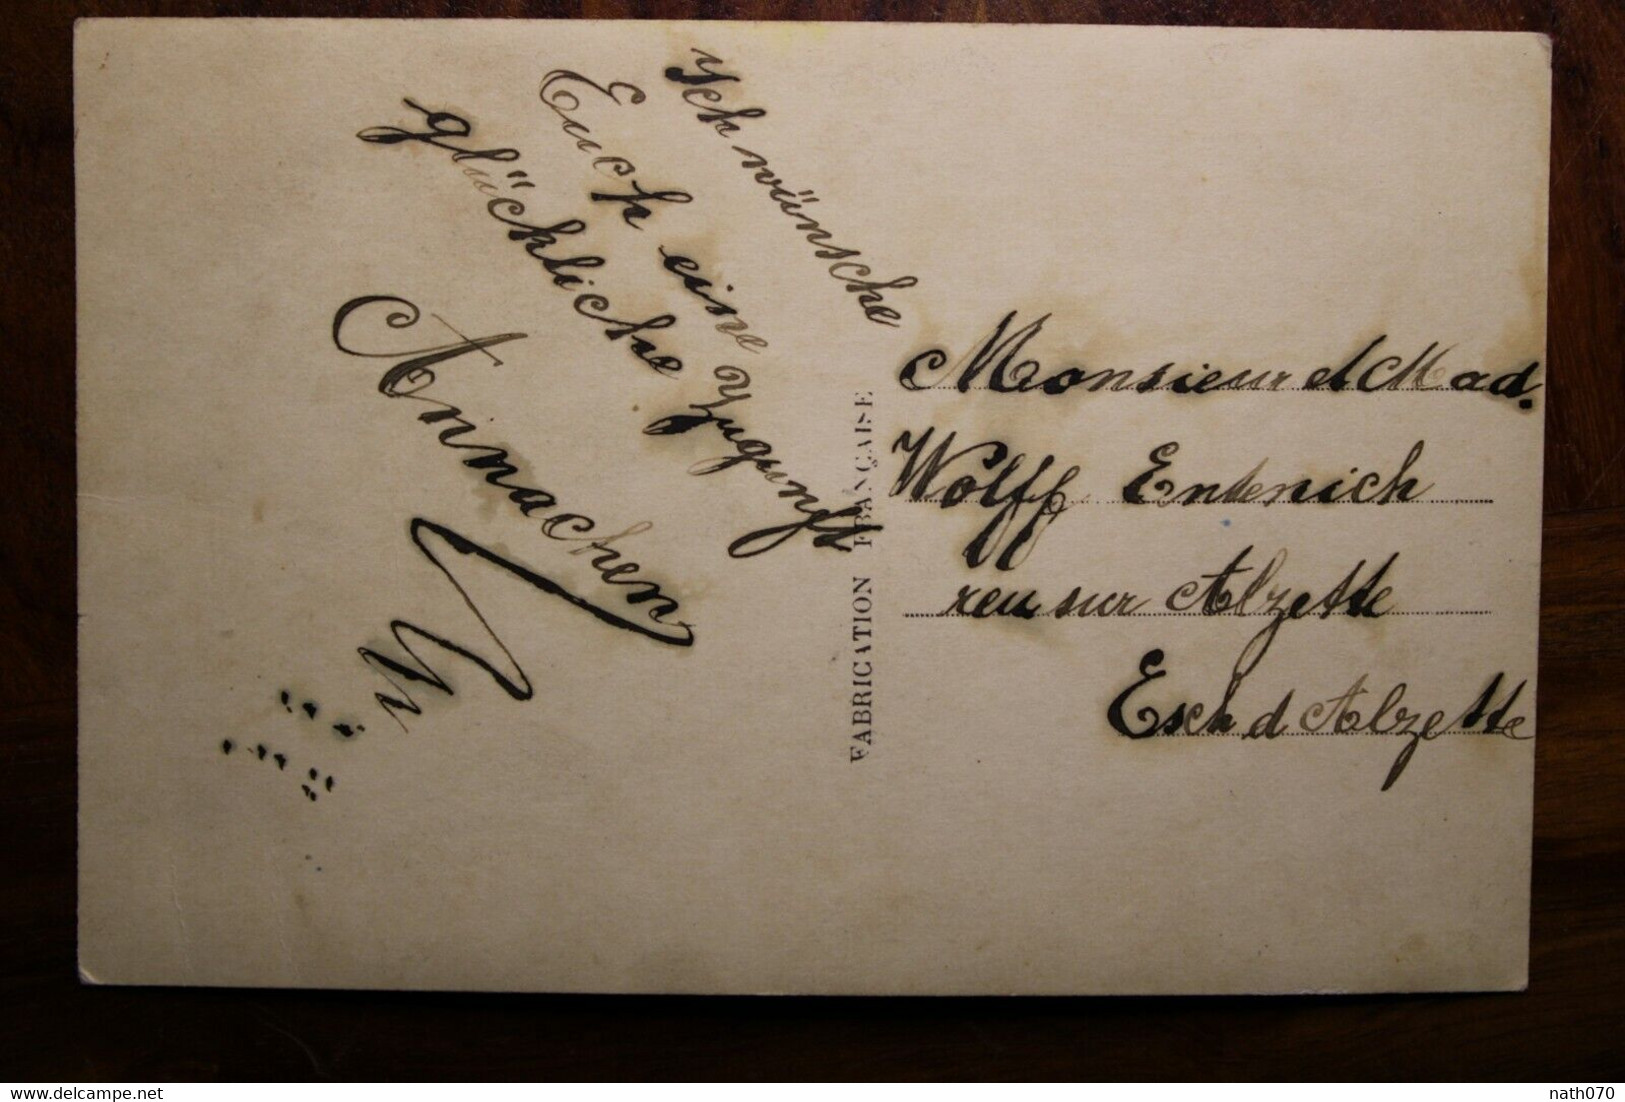 Ich wünsche
Euch eine Zugunft
glückliche
Annachen
FABRICATION FRANÇAISE
Monsieur et Mad.
Wolff Entenich
reu sur Alzette
Esch d Alzette
nath070